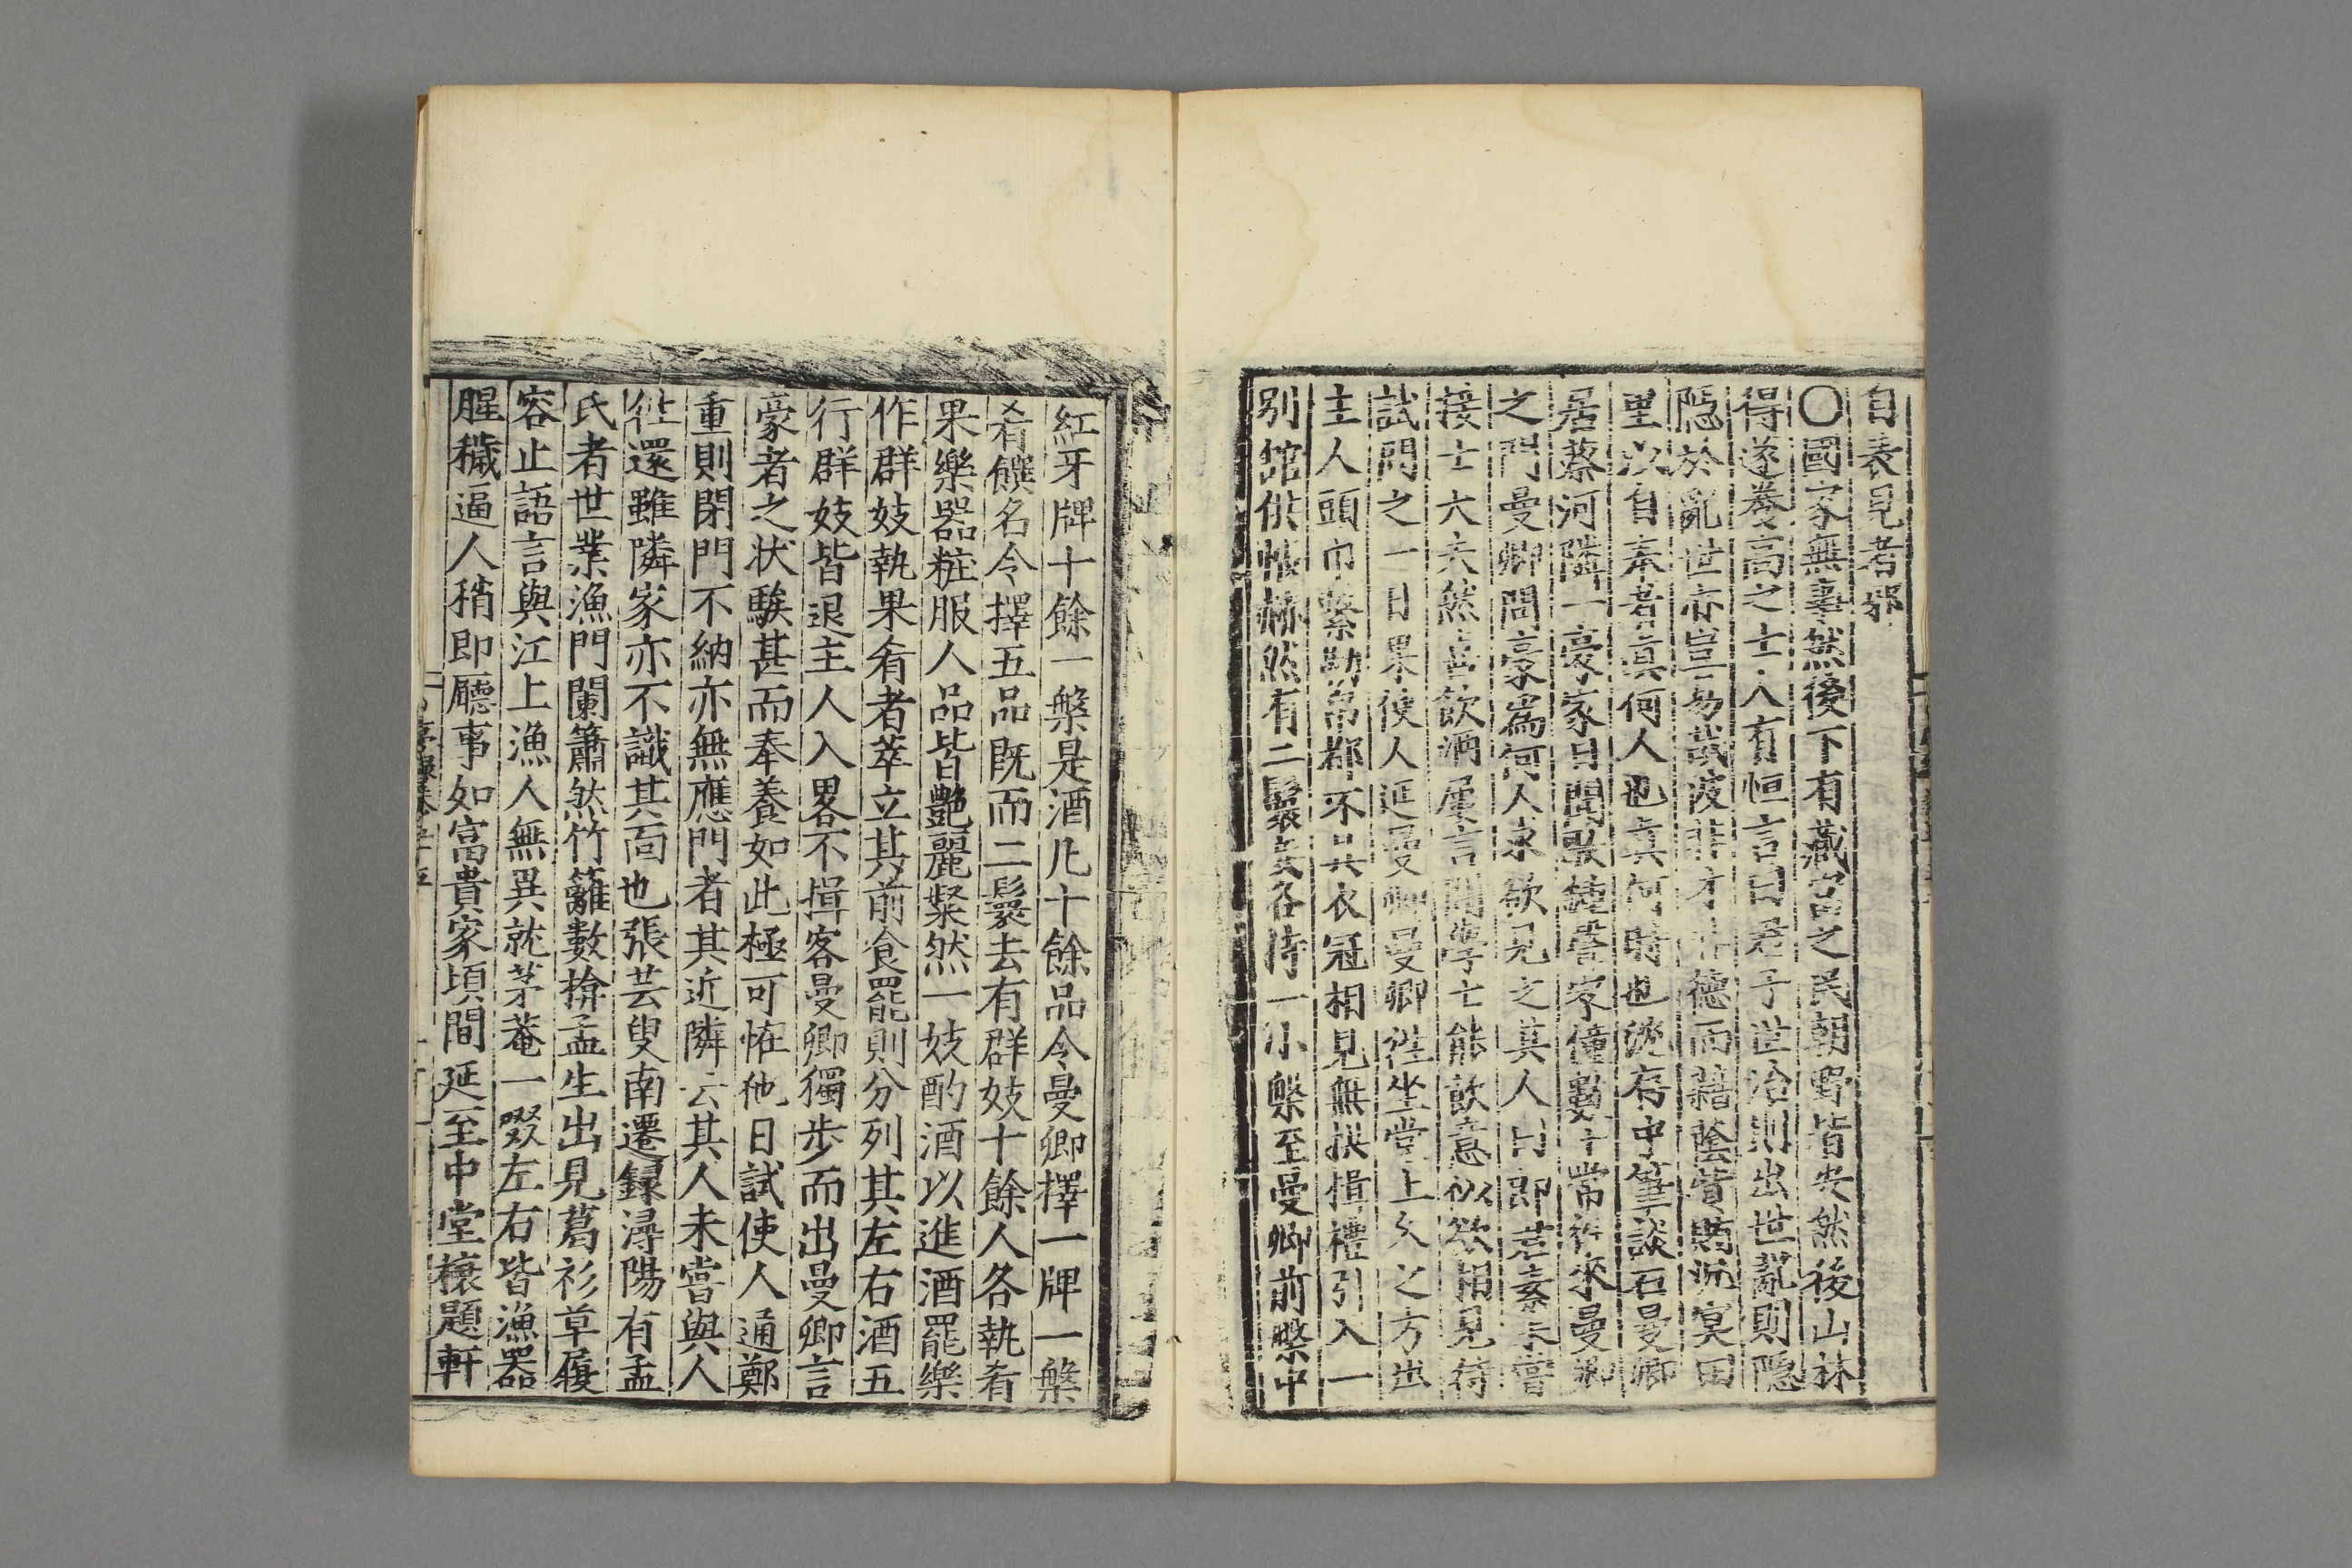 自表見者邪
〇國家無事然後下有藏富之民朝野皆安然後山林
得遂養高之士人有恒言曰君子世治則出世亂則隱
隱於亂世亦豈易哉彼非才德而藉蔭貲賄沉冥田
里以自奉者眞何人也眞何時也沈存中筆談石曼卿
居蔡河隣一豪家日聞歌鐘聲家僮數十常徃來曼卿
之門曼卿問豪爲何人求欲見之其人曰郎君素未嘗
接士大夫然喜飲酒屢言聞學士能飲意似欲相見待
試問之一日果使人延曼卿曼卿徃坐堂上久之方出
主人頭巾繫勒帛都不具衣冠相見無拱揖禮引入一
別舘供帳赫然有二鬟妾各侍一小槃至曼卿前槃中
紅牙牌十餘一槃是酒凡十餘品令曼卿擇一牌一槃
肴饌名令擇五品既而二鬟去有群妓十餘人各執肴
果樂器粧服人品皆艷麗粲然一妓酌酒以進酒罷樂
作群妓執果肴者萃立其前食罷則分列其左右酒五
行群妓皆退主人入畧不揖客曼卿獨步而出曼卿言
豪者之状騃甚而奉養如此極可恠他日試使人通鄭
重則閉門不納亦無應門者其近隣云其人未嘗與人
徃還雖隣家亦不識其靣也張芸叟南遷録潯陽有孟
氏者世業漁門闌簫然竹籬數揜孟生出見葛衫草屨
容止語言與江上漁人無異就茅菴一啜左右皆漁器
腥穢逼人稍即廳事如富貴家頃間延至中堂榱題軒